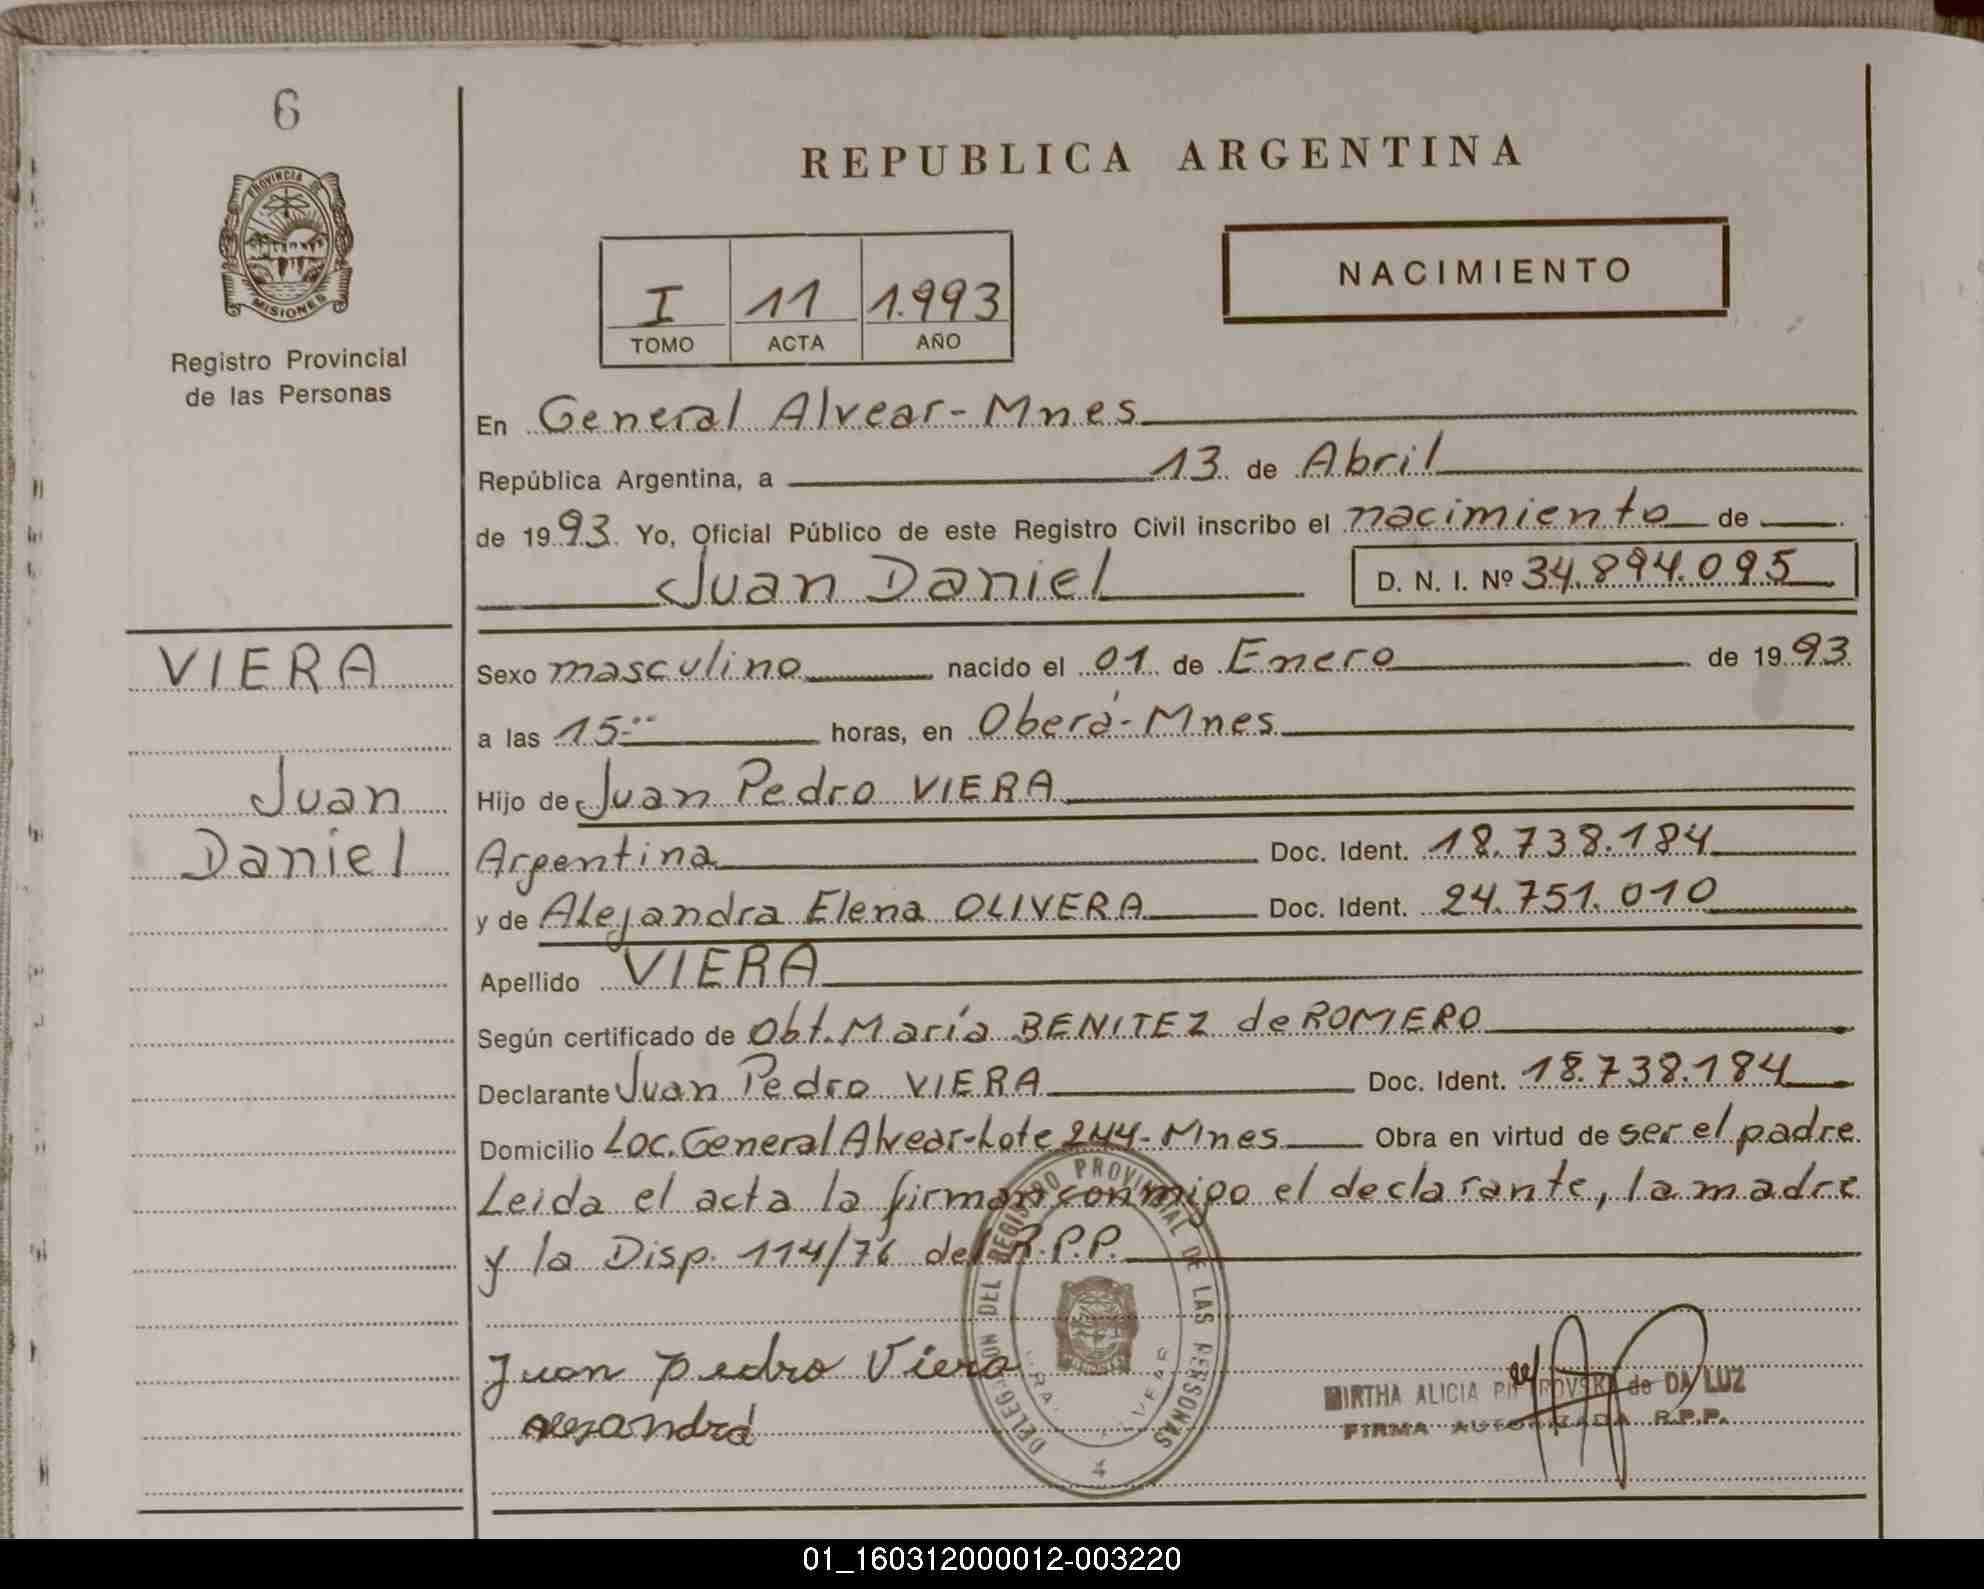 6
PROVINCIA DE
MISIONES
Registro Provincial
de las Personas
REPUBLICA ARGENTINA
I 11 1.993
TOMO ACTA AÑO
NACIMIENTO
En General Alvear-Mnes
República Argentina, a 13 de Abril
de 1993. Yo, Oficial Público de este Registro Civil inscribo el nacimiento de
Juan Daniel D. N. I. Nº 34.894.095
VIERA
Juan
Daniel
Sexo masculino nacido el 01 de Enero de 1993
a las 15 horas, en Oberá-Mnes
Hijo de Juan Pedro VIERA
Argentina Doc. Ident. 18.738.184
y de Alejandra Elena OLIVERA Doc. Ident. 24.751.010
Apellido VIERA
Según certificado de Obt. María BENITEZ de ROMERO
Declarante Juan Pedro VIERA Doc. Ident. 18.738.184
Domicilio Loc. General Alvear-Lote 244-Mnes Obra en virtud de ser el padre
Leida el acta la firman conmigo el declarante, la madre
y la Disp. 114/76 del R.P.P.
DEL REGISTRO PROVINCIAL DE LAS PERSONAS
4
Juan pedro Viera
alejandra
MIRTHA ALICIA de DA LUZ
FIRMA AUTORIZADA R.P.P.
01_160312000012-003220